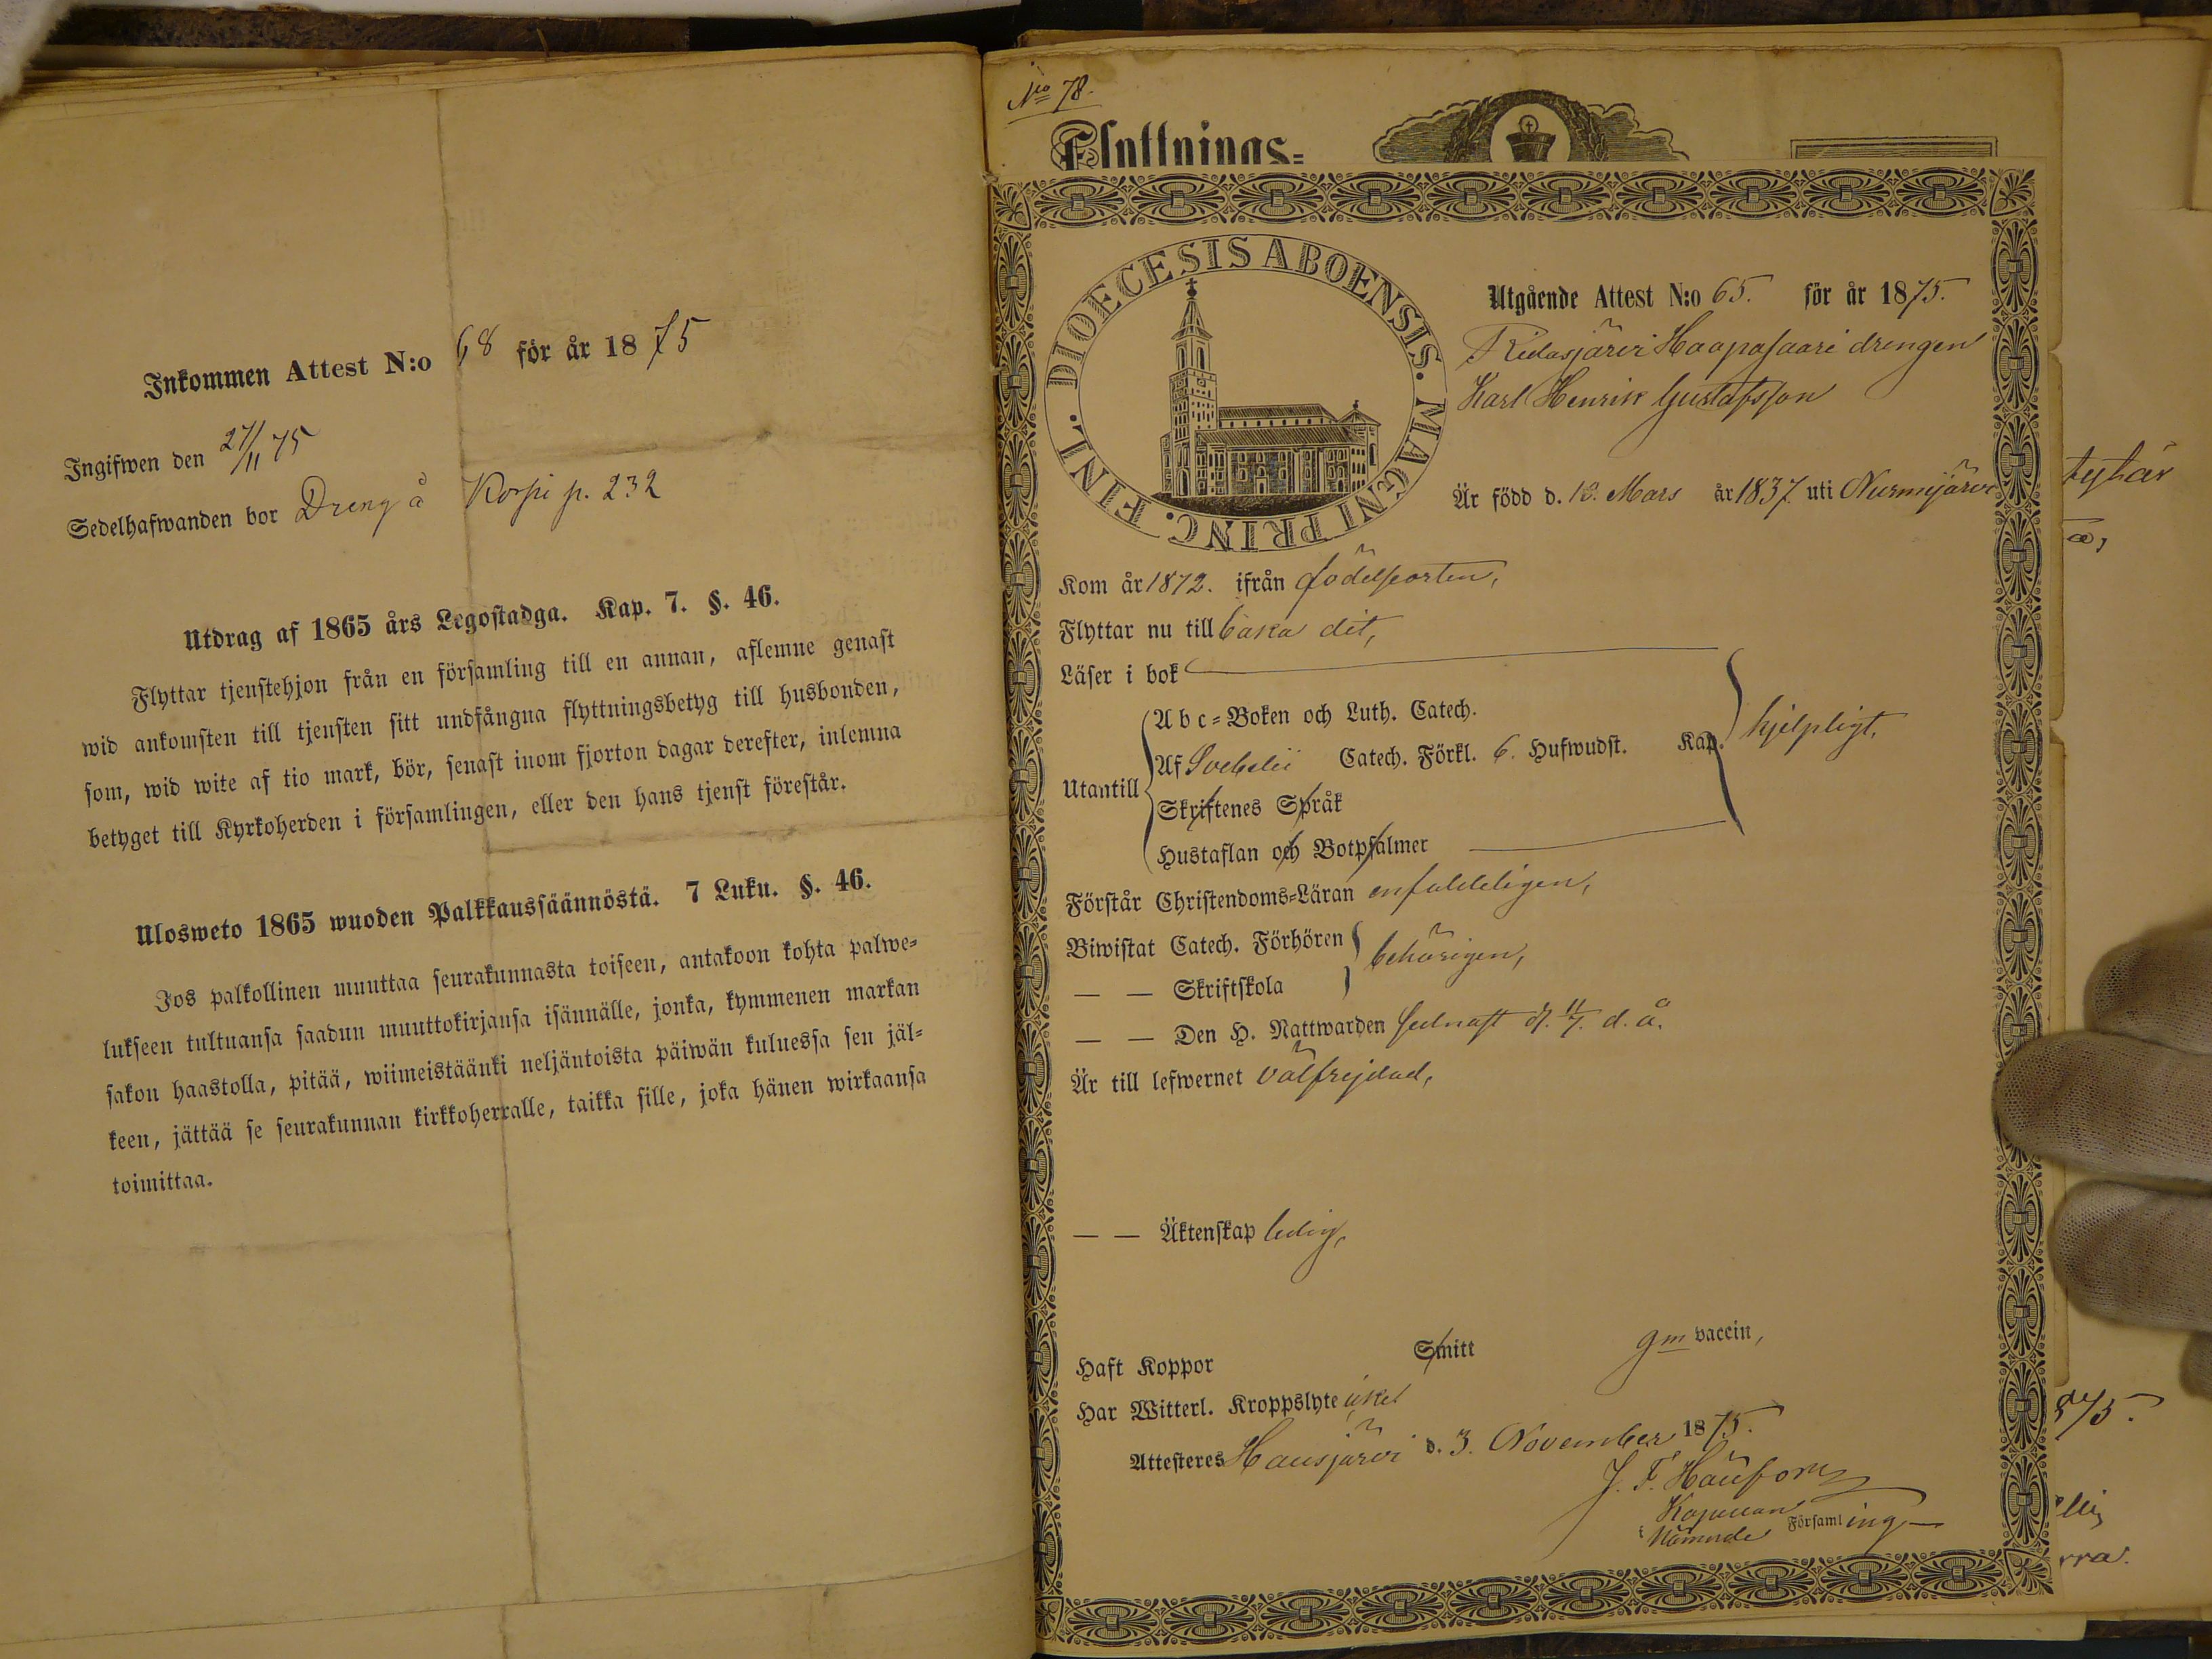 Inkommen Attest N:o 68 för år 1875
Ingifwen den 27/11 75
Sedelhafwanden bor Dreng å Korpi p. 232
Utdrag af 1865 års Legostadga. Kap. 7. §. 46.
Flyttar tjenstehjon från en församling till en annan, aflemne genast
wid ankomsten till tjensten sitt undfångna flyttningsbetyg till husbonden,
som, wid wite af tio mark, bör, senast inom fjorton dagar derefter, inlemna
betyget till Kyrkoherden i församlingen, eller den hans tjenst förestår.
Ulosweto 1865 wuoden Palkkaussäännöstä. 7 Luku. §. 46.
Jos palkollinen muuttaa seurakunnasta toiseen, antakoon kohta palwe-
lukseen tultuansa saadun muuttokirjansa isännälle, jonka, kymmenen markan
sakon haastolla, pitää, wiimeistäänki neljäntoista päiwän kuluessa sen jäl-
keen, jättää se seurakunnan kirkkoherralle, taikka sille, joka hänen wirkaansa
toimittaa.
No 78.
Flyttnings-
DIOECESIS ABOENSIS. MAGNI PRINC. FINL.
Utgående Attest N:o 65. för år 1875.
Ridasjärvi Haapasaari drengen
Karl Henrik Gustafsson
Är född d. 13. Mars år 1837. uti Nurmijärvi
Kom år 1872. ifrån födelseorten,
Flyttar nu till baka dit,
Läser i bok
Utantill
Abc-Boken och Luth. Catech.
Af Svebelii Catech. Förkl. 6. Hufwudst. Kap.
Skriftenes Språk
Hustaflan och Botpsalmer
hjelpligt.
Förstår Christendoms-Läran enfaldeligen,
Biwistat Catech. Förhören
— — Skriftskola
behörigen,
— — Den H. Nattwarden sednast d. 11/7. d. å.
Är till lefwernet välfrejdad,
— — Äktenskap ledig,
Haft Koppor Smitt gm vaccin,
Har Witterl. Kroppslyte icke!
Attesteres Hausjärvi d. 3. November 1875.
J. F.
Kapellan
i Nämnde Församling
tyhär
875.
rra.